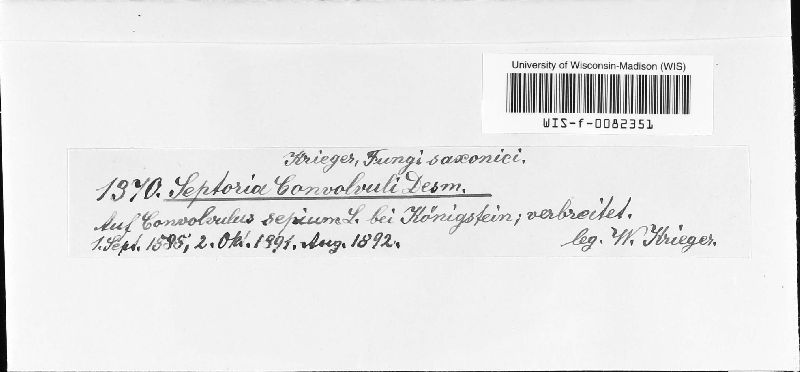 University of Wisconsin-Madison (WIS)
WIS-f-0082351
Krieger, Fungi saxonici.
1370. Septoria Convolvuli Desm.
Auf Convolvulus sepium L. bei Königstein; verbreitet.
1. Sept. 1885, 2. Okt. 1891. Aug. 1892.
leg. W. Krieger.